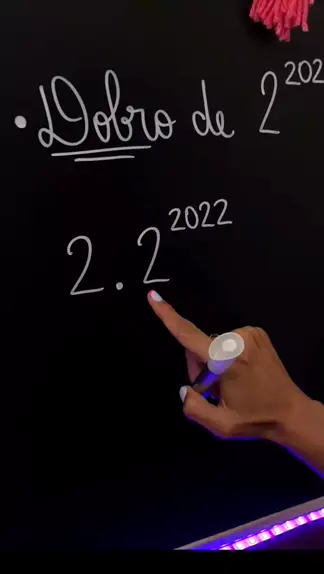 • Dobro de 2²⁰²
2 . 2²⁰²²